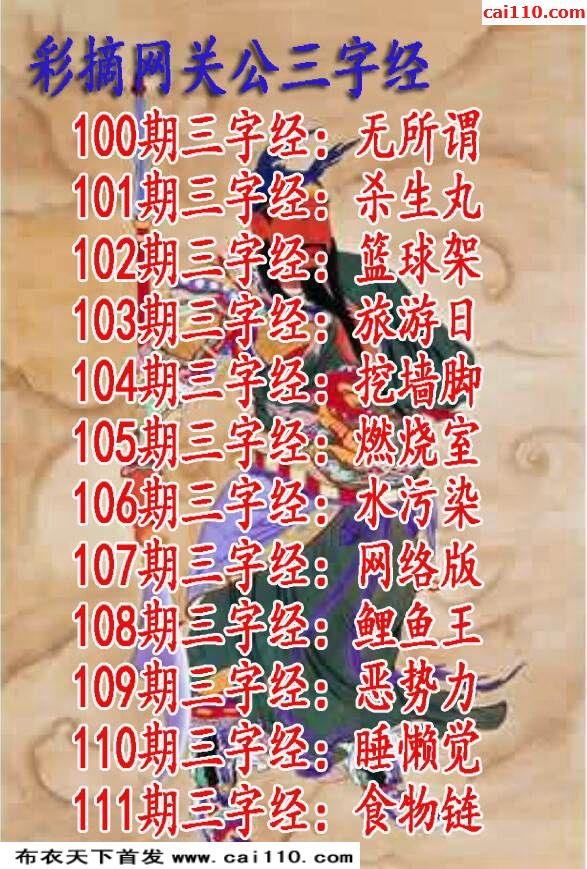 cai110.com
彩摘网关公三字经
100期三字经：无所谓
101期三字经：杀生丸
102期三字经：篮球架
103期三字经：旅游日
104期三字经：挖墙脚
105期三字经：燃烧室
106期三字经：水污染
107期三字经：网络版
108期三字经：鲤鱼王
109期三字经：恶势力
110期三字经：睡懒觉
111期三字经：食物链
布衣天下首发 www.cai110.com